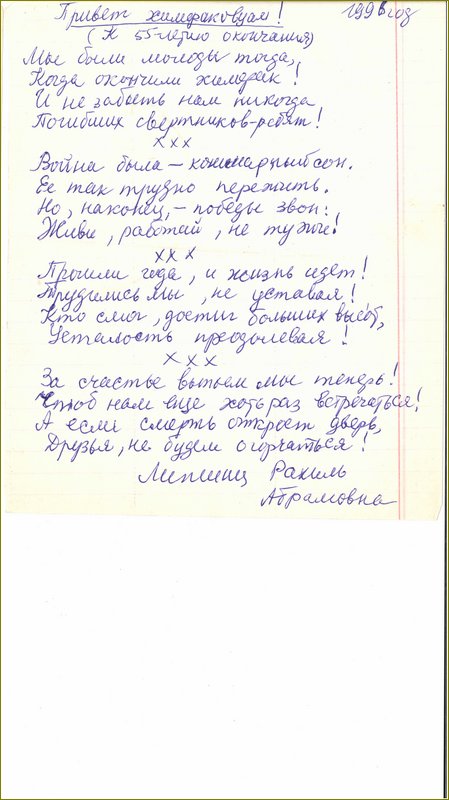 Привет химфаковцам! 1996 год
(К 55-летию окончания)
Мы были молоды тогда,
Когда окончили химфак!
И не забыть нам никогда
Погибших свертников-ребят!
х х х
Война была – кошмарный сон.
Ее так трудно пережить.
Но, наконец, – победы звон:
Живи, работай, не тужи!
х х х
Прошли года, и жизнь идет!
Трудились мы, не уставая!
Кто смог, достиг больших высот,
Усталость преодолевая!
х х х
За счастье выпьем мы теперь!
Чтоб нам еще хоть раз встречаться!
А если смерть откроет дверь,
Друзья, не будем огорчаться!
Липшиц Рахиль
Абрамовна